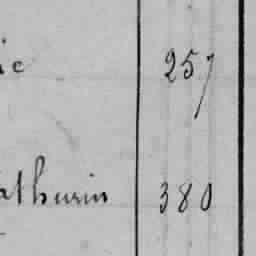 ie 257
athurin 380